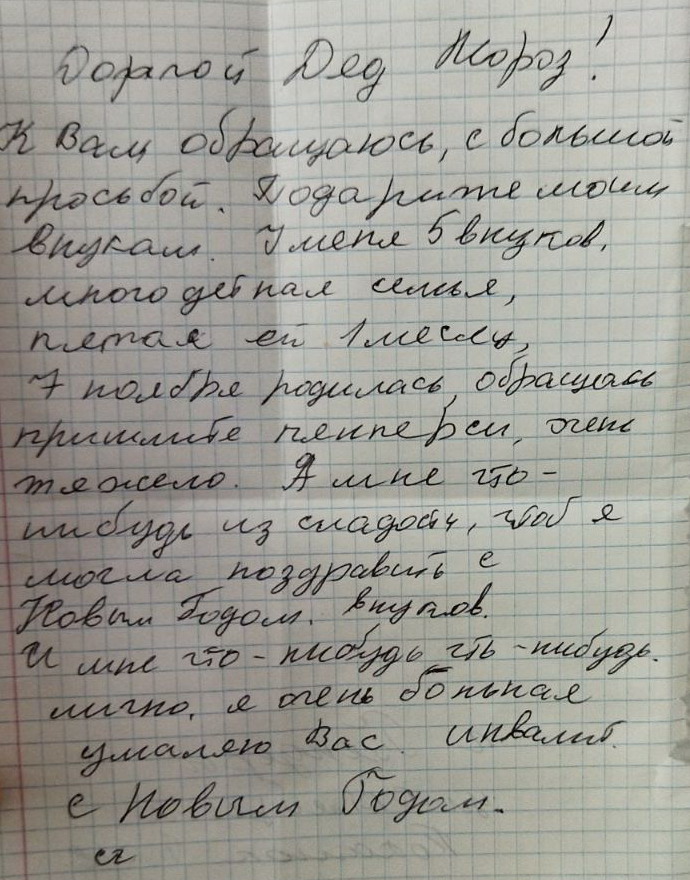 Дорагой Дед Мороз!
К Вам обращаюсь, с большой
просьбой. Подарите моим
внукам. У меня 5 внуков,
многодетная семья,
пятая ей 1 месяц,
7 ноября родилась, обращаюсь
пришлите пемперсы, очень
тяжело. А мне что-
нибудь из сладости, чтоб я
могла поздравить с
Новым Годом. внуков.
И мне что-нибудь что-нибудь.
лично, я очень больная
умаляю Вас. инвалит.
с Новым Годом.